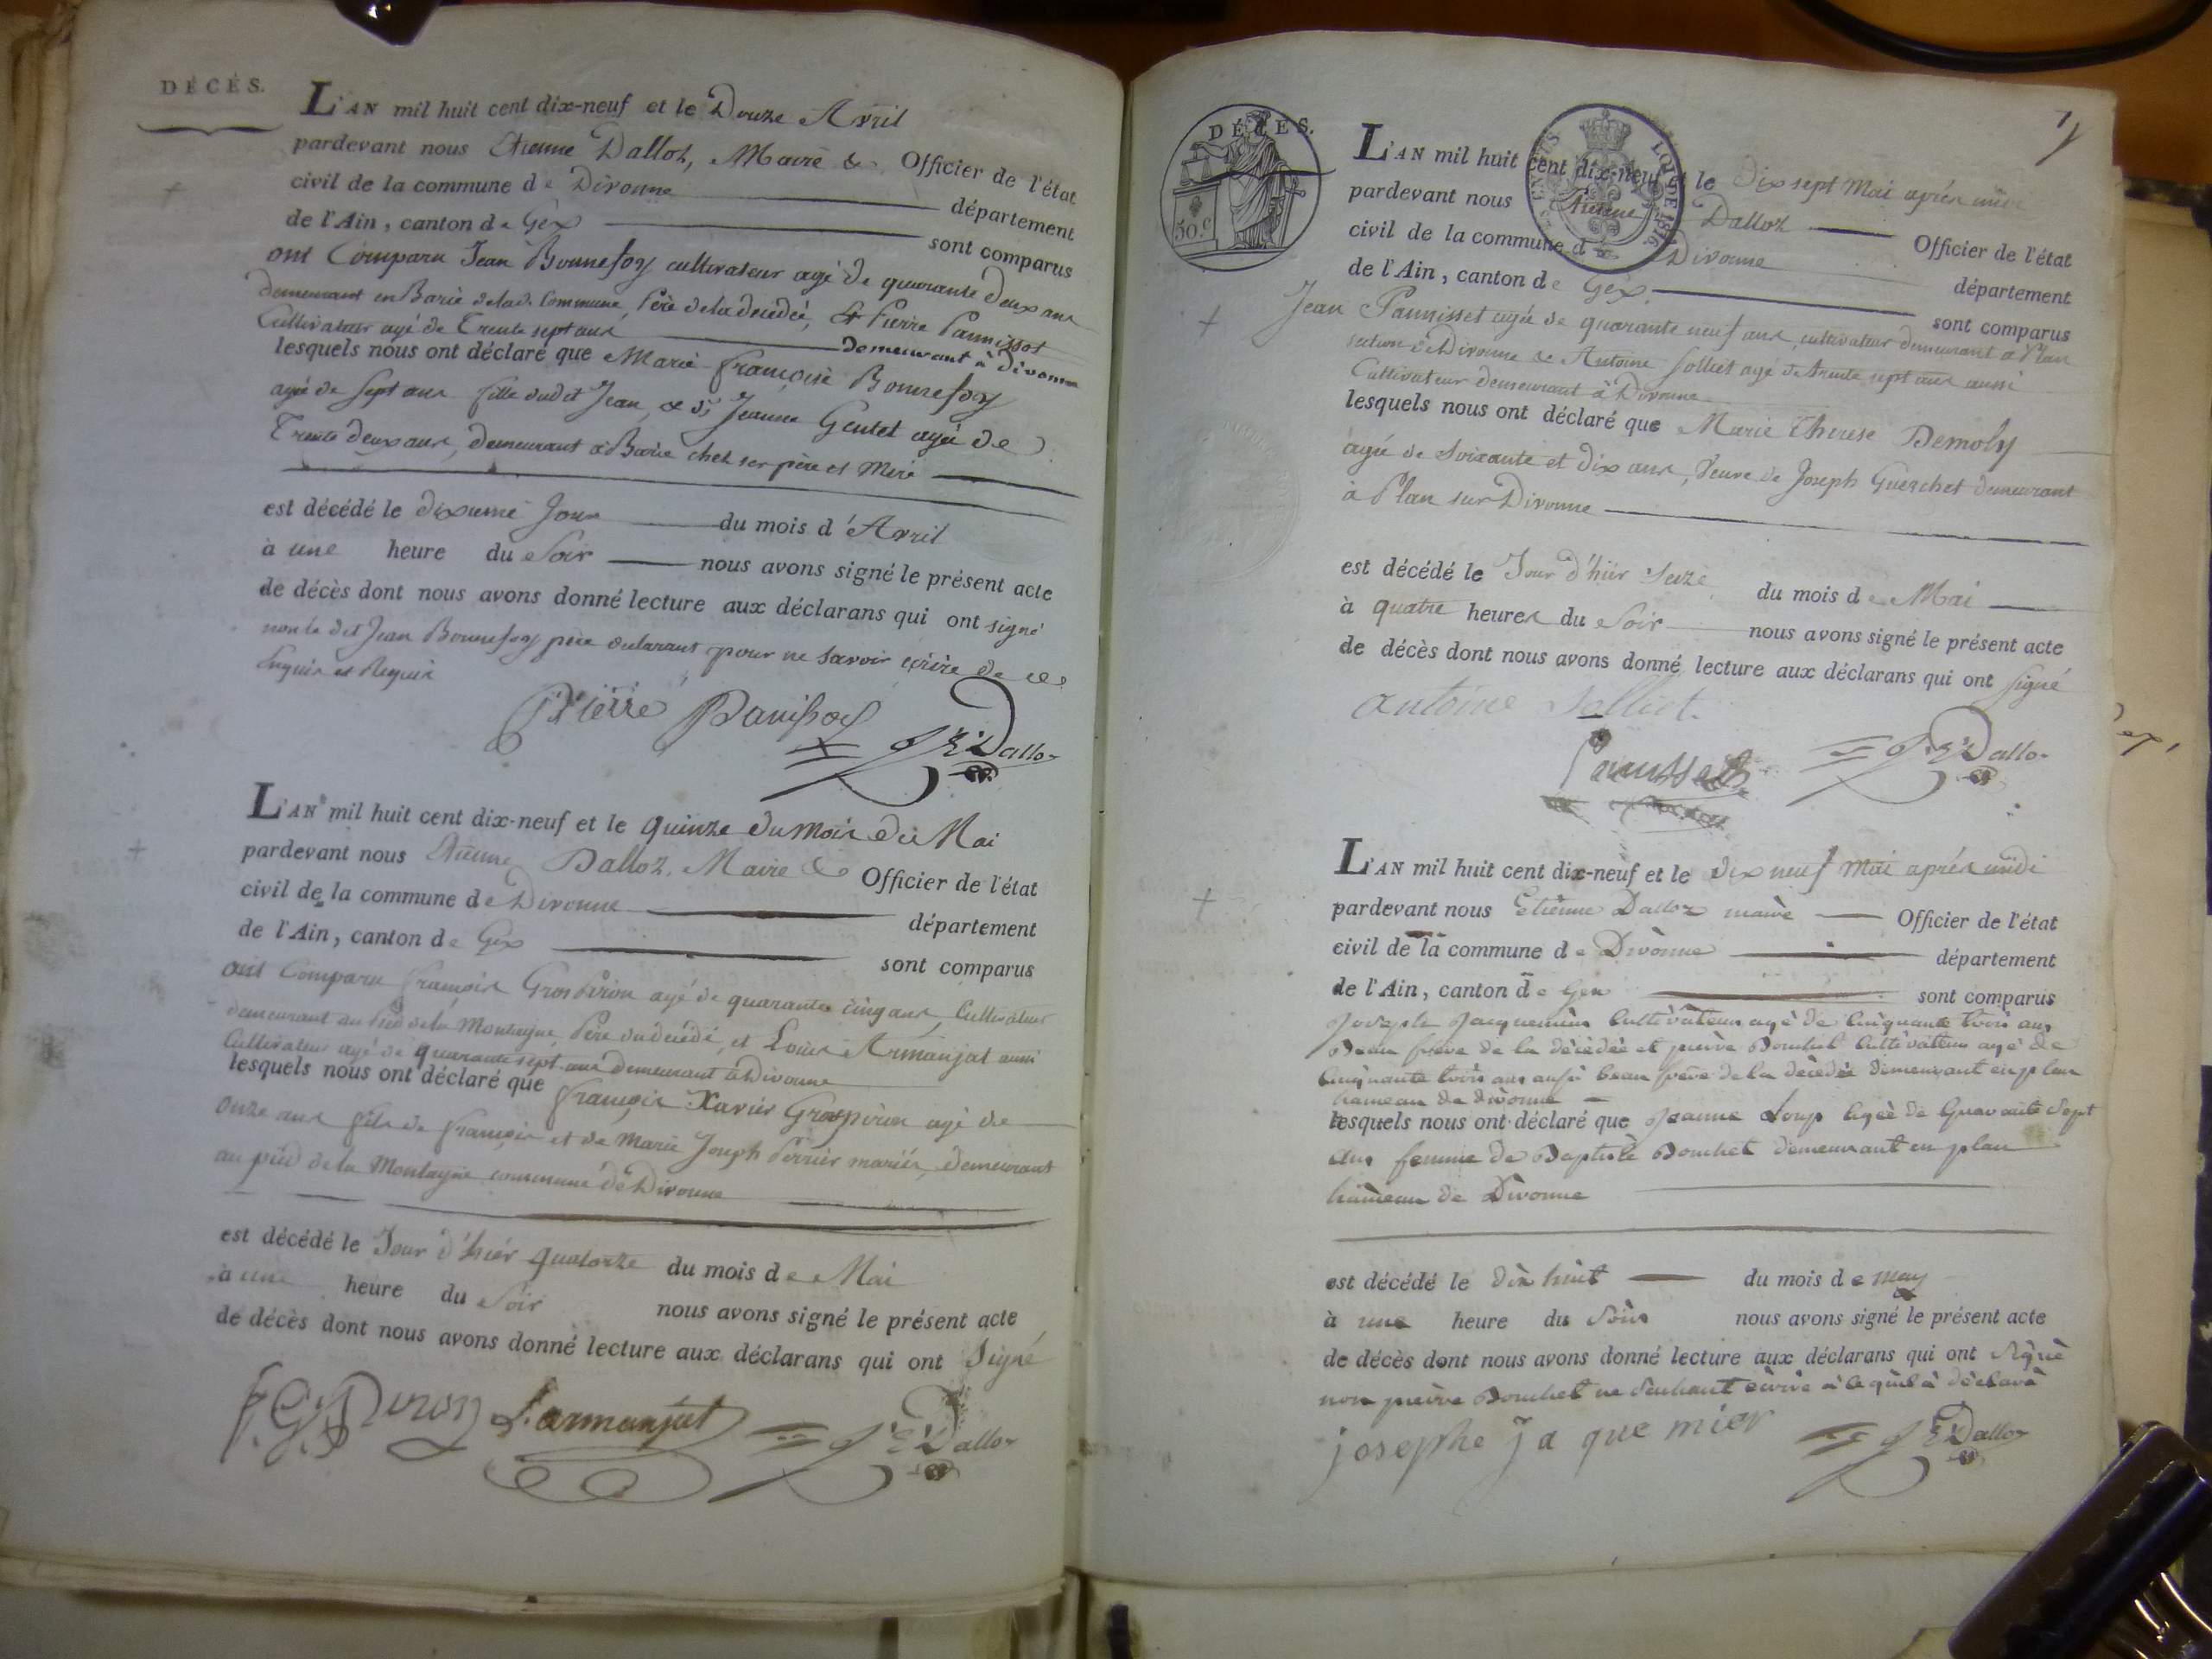 DÉCÉS.
L'AN mil huit cent dix-neuf et le Douze Avril
pardevant nous Etienne Dalloz, Maire & Officier de l'état
civil de la commune de Divonne département
de l'Ain, canton de Gex sont comparus
ont Comparu Jean Bonnefoy cultivateur agé de quarante deux ans
demeurant en Barie de lad. Commune, Père de la décédée, & Pierre Pannissot
Cultivateur agé de Trente sept ans demeurant à Divonne
lesquels nous ont déclaré que Marie françoise Bonnefoy
agée de sept ans fille dudit Jean, & de Jeanne Gentet agée de
Trente deux ans, demeurant à Barie chez ses père et Mère
est décédé le dixieme Jour du mois d'Avril
à une heure du Soir nous avons signé le présent acte
de décès dont nous avons donné lecture aux déclarans qui ont signé
non le dit Jean Bonnefoy père déclarant pour ne savoir écrire de ce
Enquis et Requis
Pierre Panissod
E Dalloz
L'AN mil huit cent dix-neuf et le quinze du mois de Mai
pardevant nous Etienne Dalloz, Maire & Officier de l'état
civil de la commune de Divonne département
de l'Ain, canton de Gex sont comparus
ont Comparu françois Grospiron agé de quarante cinq ans, Cultivateur
demeurant au Pied de la Montagne, Père du décédé, et Louis Armanjat aussi
Cultivateur agé de quarante sept ans demeurant à Divonne
lesquels nous ont déclaré que françois Xavier Grospiron agé de
onze ans fils de françois et de Marie Joseph Perrier mariés, demeurant
au pied de la Montagne commune de Divonne
est décédé le Jour d'hiér quatorze du mois de Mai
à une heure du Soir nous avons signé le présent acte
de décès dont nous avons donné lecture aux déclarans qui ont signé
f. G. Piron L. armanjat E Dalloz
7
DÉCÉS.
30.c
LOI DE 1816.
L'AN mil huit cent dix-neuf et le Dix sept Mai aprés midi
pardevant nous Etienne Dalloz Officier de l'état
civil de la commune de Divonne département
de l'Ain, canton de Gex. sont comparus
Jean Pannisset agé de quarante neuf ans, cultivateur demeurant à Plan
section de Divonne & Antoine Solliet agé de trente sept ans aussi
Cultivateur demeurant à Divonne
lesquels nous ont déclaré que Marie Therese Demoly
agée de soixante et dix ans, Veuve de Joseph Guerchet demeurant
à Plan sur Divonne
est décédé le Jour d'hiér seize du mois de Mai
à quatre heures du Soir nous avons signé le présent acte
de décès dont nous avons donné lecture aux déclarans qui ont signé
antoine Solliet.
Panisset E Dalloz
L'AN mil huit cent dix-neuf et le dix neuf Mai aprés midi
pardevant nous Etienne Dalloz maire Officier de l'état
civil de la commune de Divonne département
de l'Ain, canton de Gex sont comparus
Joseph Jacquemier Cultivateur agé de Cinquante trois ans
Beau frere de la décédée et pierre Bouchet Cultivateur agé de
Cinquante trois ans aussi beau frere de la décédée demeurant en plan
hameau de divonne
lesquels nous ont déclaré que Jeanne Loup agée de Quarante Sept
ans femme de Baptiste Bouchet demeurant en plan
hameau de Divonne
est décédé le dix huit du mois de may
à une heure du Soir nous avons signé le présent acte
de décès dont nous avons donné lecture aux déclarans qui ont signé
non pierre Bouchet ne sachant écrire à ce quil à déclaré
josephe ja que mier E Dalloz